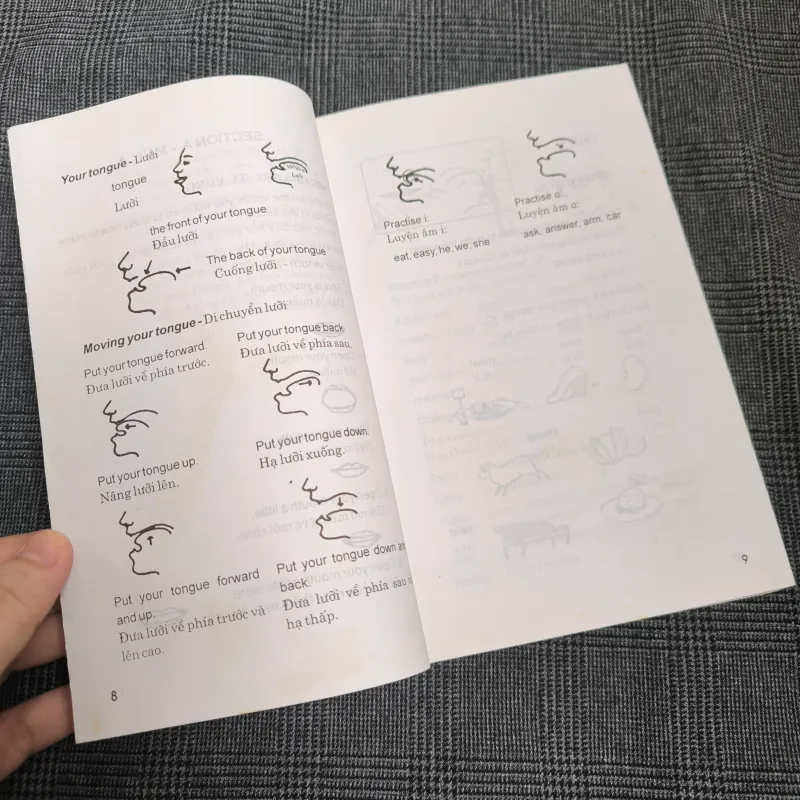 Your tongue - Lưỡi
tongue
Lưỡi
tongue
Lưỡi
the front of your tongue
Đầu lưỡi
The back of your tongue
Cuống lưỡi
Moving your tongue - Di chuyển lưỡi
Put your tongue forward.
Đưa lưỡi về phía trước.
Put your tongue back.
Đưa lưỡi về phía sau.
Put your tongue up.
Nâng lưỡi lên.
Put your tongue down.
Hạ lưỡi xuống.
Put your tongue forward
and up.
Đưa lưỡi về phía trước và
lên cao.
Put your tongue down
back.
Đưa lưỡi về phía sau
hạ thấp.
8
Practise i:
Luyện âm i:
eat, easy, he, we, she
Practise ɑ:
Luyện âm ɑ:
ask, answer, arm, car
9